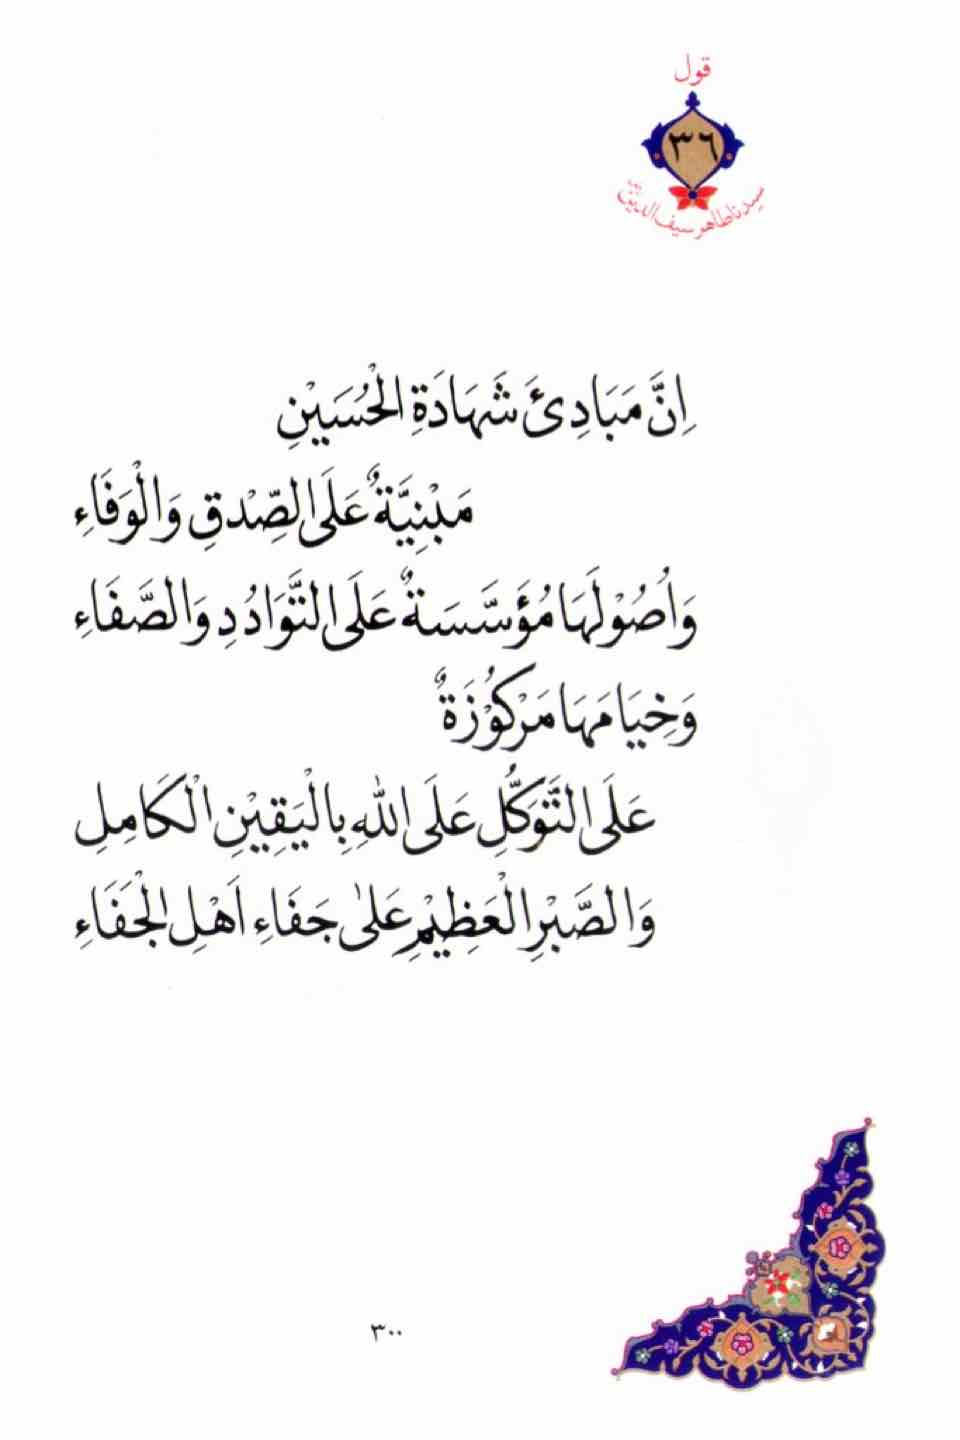 قول
٣٦
سيدنا طاهر سيف الدين
اِنَّ مَبَادِئَ شَهَادَةِ الْحُسَيْنِ
مَبْنِيَّةٌ عَلَى الصِّدْقِ وَالْوَفَاءِ
وَاُصُوْلَهَا مُؤَسَّسَةٌ عَلَى التَّوَادُدِ وَالصَّفَاءِ
وَخِيَامَهَا مَرْكُوْزَةٌ
عَلَى التَّوَكُّلِ عَلَى اللّٰهِ بِالْيَقِيْنِ الْكَامِلِ
وَالصَّبْرِ الْعَظِيْمِ عَلىٰ جَفَاءِ اَهْلِ الْجَفَاءِ
٣٠٠